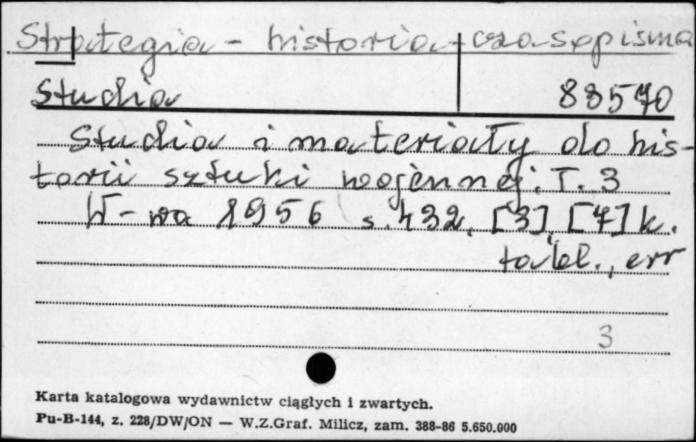 Strategia - historia - czasopisma
Studia 88570
Studia i materiały do his-
torii sztuki wojennej. T. 3
W-wa 1956 s. 432, [3], [4] k.
tabl., err
3
Karta katalogowa wydawnictw ciągłych i zwartych.
Pu-B-144, z. 228/DW/ON — W.Z.Graf. Milicz, zam. 388-86 5.650.000